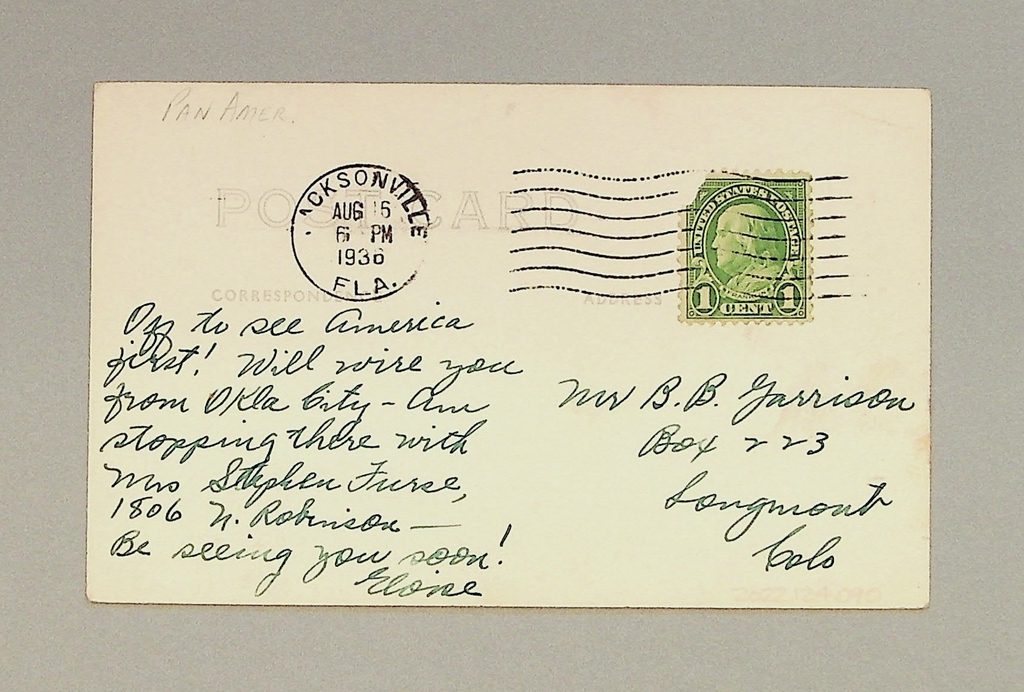 PAN AMER.
POST CARD
JACKSONVILLE
AUG 16
6 PM
1936
FLA.
UNITED STATES POSTAGE
FRANKLIN
1 CENT 1
CORRESPONDENCE
ADDRESS
Off to see America
first! Will wire you
from Okla City - Am
stopping there with
Mrs Stephen Furse,
1806 N. Robinson —
Be seeing you soon!
Eloise
Mr B.B. Garrison
Box 223
Longmont
Colo